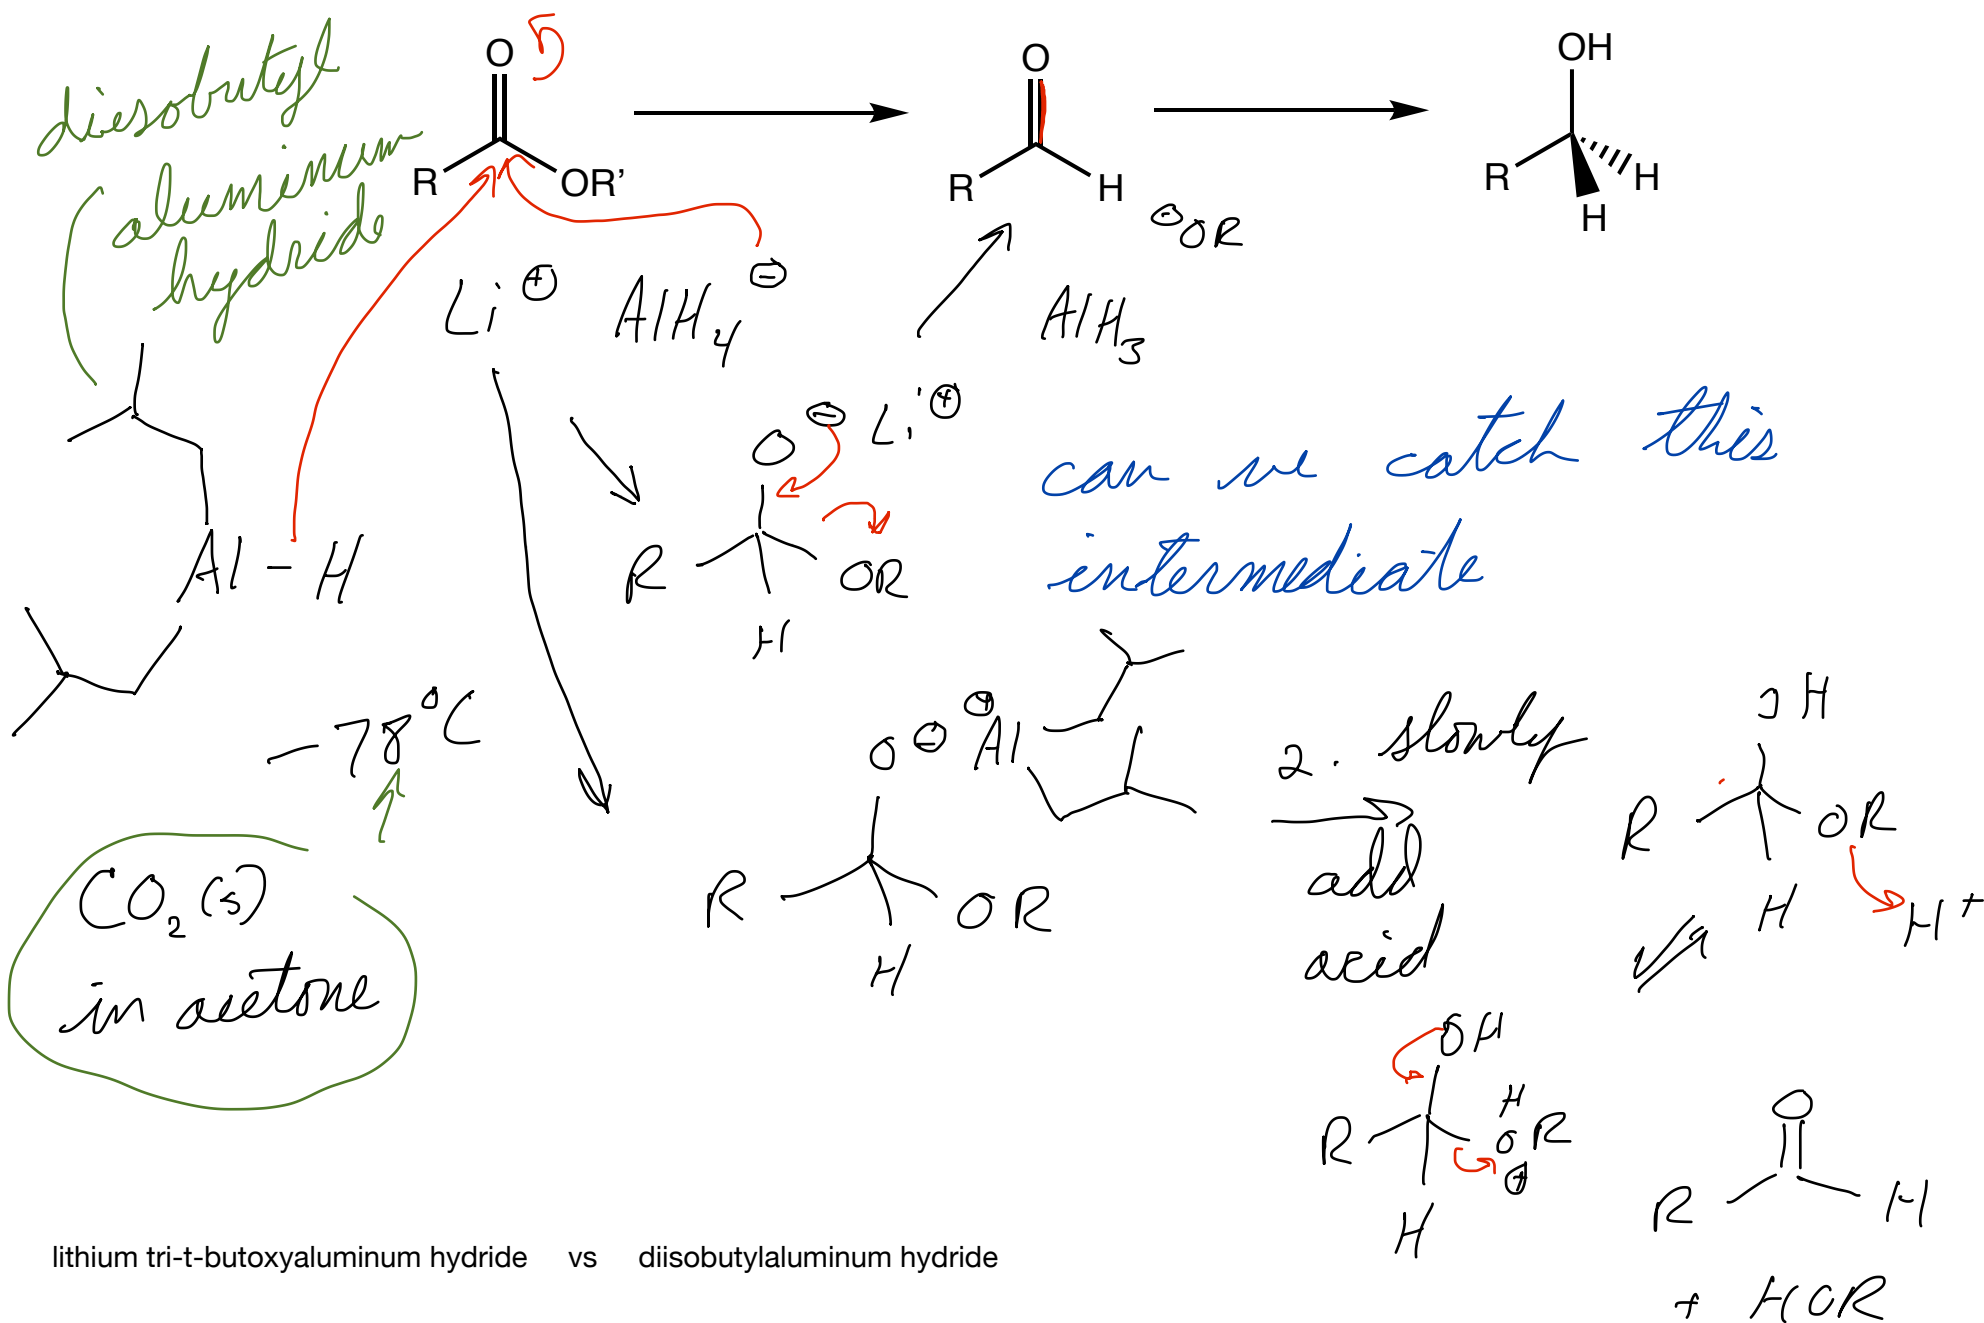 diisobutyl
aluminum
hydride
O
R
OR'
O
R
H
⊖OR
OH
R
H
H
Li⊕ AlH4⊖
AlH3
O⊖ Li⊕
R
OR
H
can we catch this
intermediate
Al-H
-78°C
CO2(s)
in acetone
O⊖ ⊕Al
R
OR
H
2. slowly
add
acid
OH
R
OR
H
H+
OH
H
R
OR
⊕
H
O
R
H
+ HOR
lithium tri-t-butoxyaluminum hydride vs diisobutylaluminum hydride